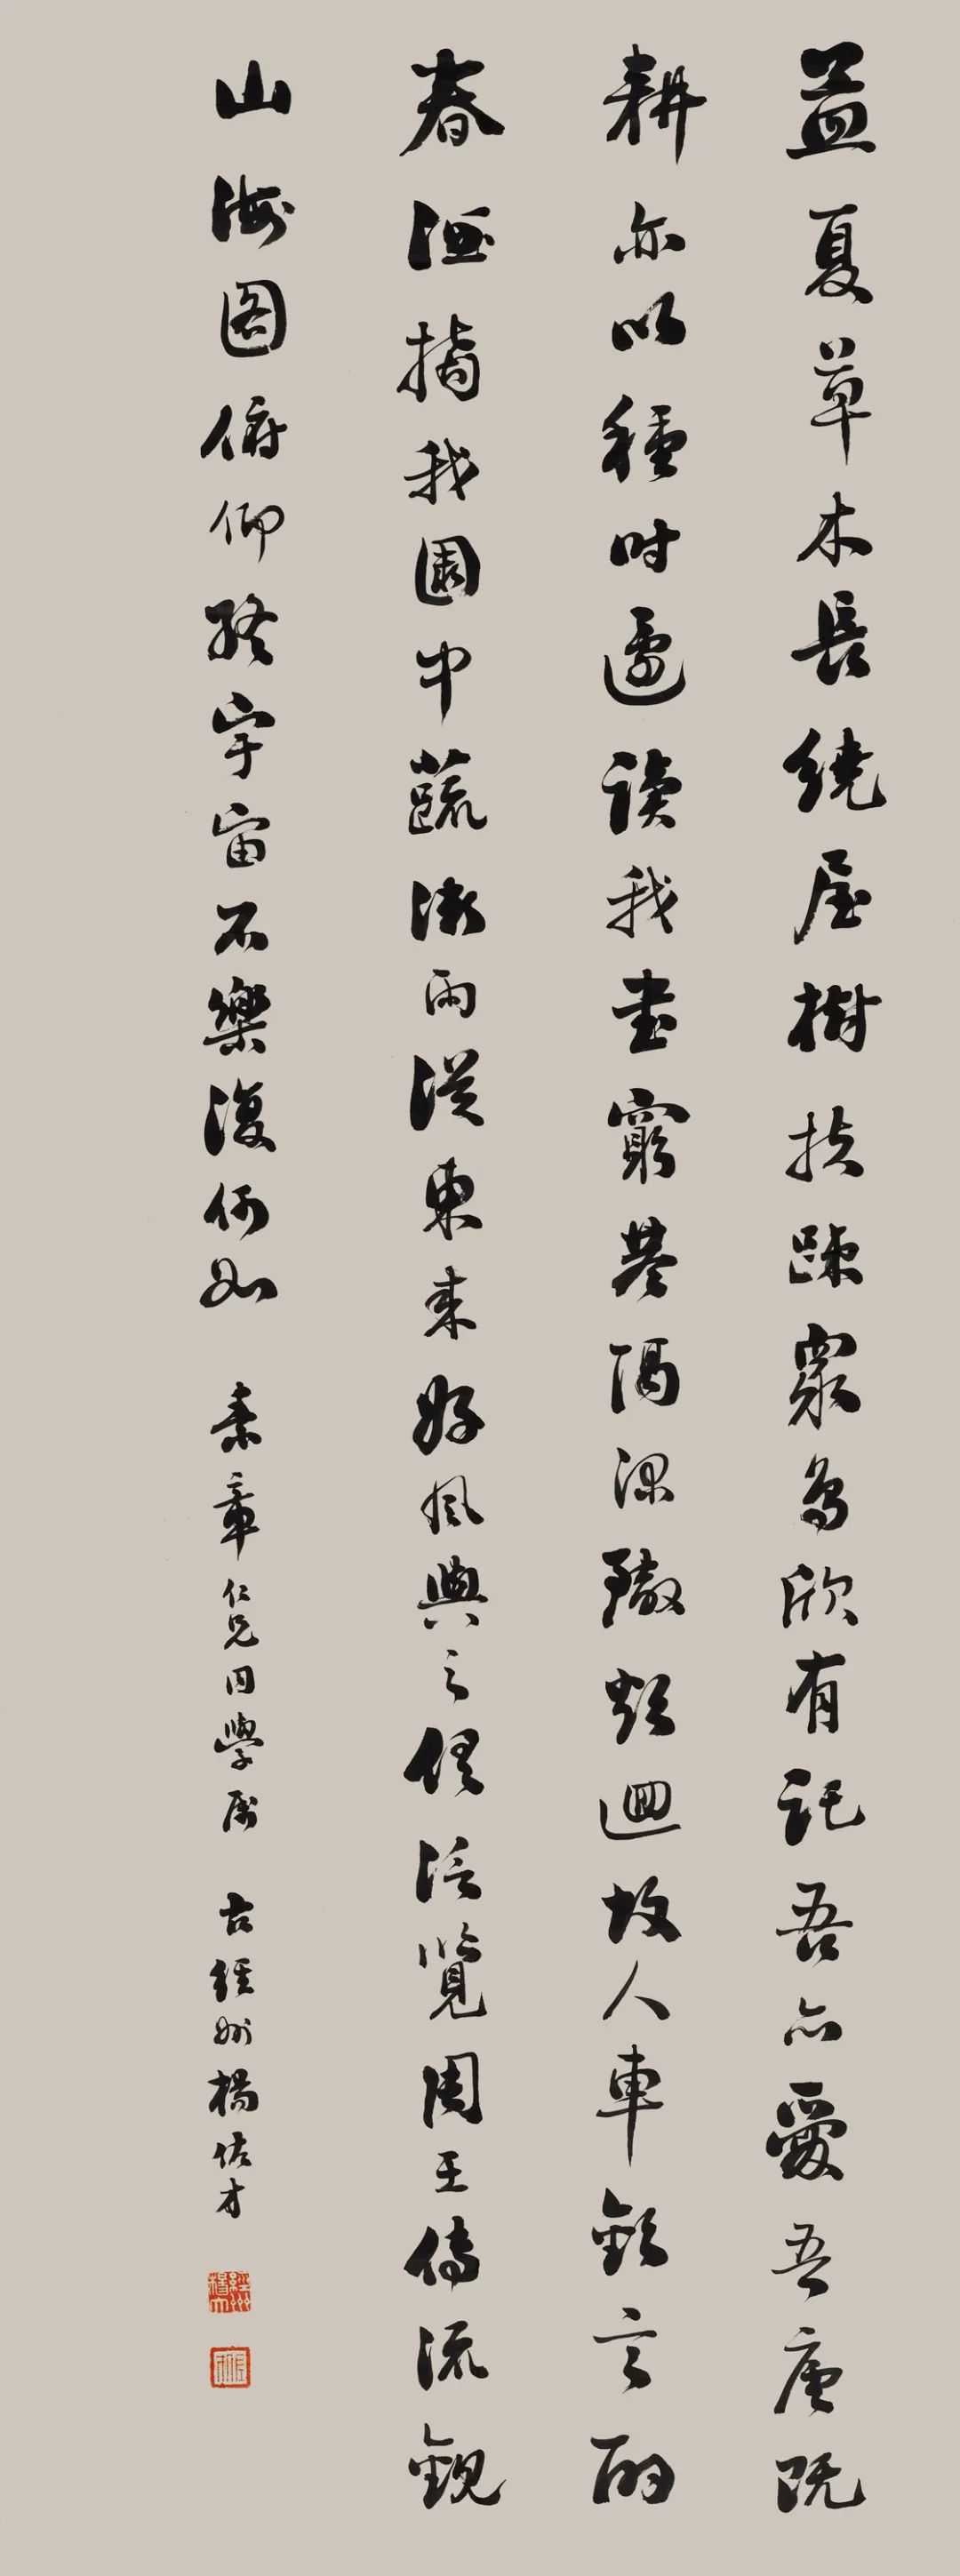 孟夏草木長繞屋樹扶疎眾鳥欣有託吾亦愛吾廬既
耕亦以種時還讀我書窮巷隔深轍頗迴故人車歡言酌
春酒摘我園中蔬微雨從東來好風與之俱泛覽周王傳流觀
山海圖俯仰終宇宙不樂復何如 素章仁兄同學屬 古經州楊佐才